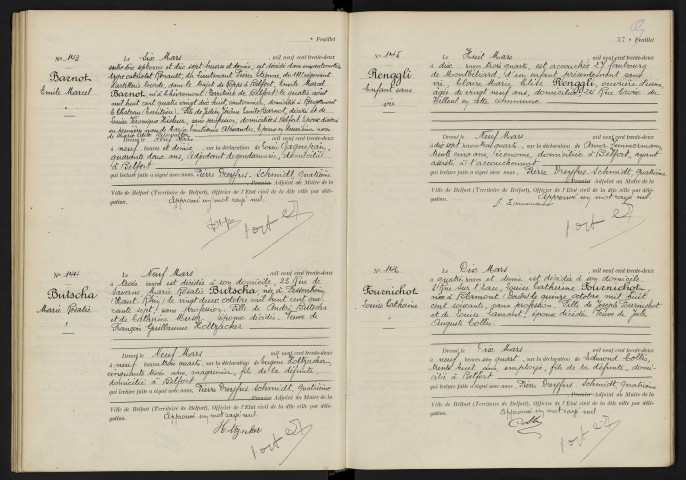 * Feuillet
N° 143
Barnot
Emile Marcel
Le Six Mars , mil neuf cent trente-deux
entre dix heures et dix sept heures et demie, est décédé dans
type cabriolet Renault, du Lieutenant Pierre Etienne du
d'artillerie lourde, dans le trajet de à Belfort, Emile Marcel
Barnot, né à Chèvremont (Territoire de Belfort) le quatre août
mil huit cent quatre vingt dix huit, cantonnier, domicilié à Rougemont
le Château (Territoire). Fils de Julien Jérôme Emile Barnot, décédé, et de
Louise Véronique , sans profession, domiciliée à Belfort, époux divorcé
en premières noces de Marie Emilienne Alexandre, époux en deuxièmes noces
de Marie
Dressé le Neuf Mars , mil neuf cent trente-deux
à neuf heures et demie , sur la déclaration de Louis Gagnepain,
quarante deux ans, Adjudant de gendarmerie, domicilié
à Belfort
qui lecture faite a signé avec nous, Pierre Dreyfus-Schmidt, Quatrième
Premier Adjoint au Maire de la
Ville de Belfort (Territoire de Belfort), Officier de l'Etat civil de la dite ville par délé-
gation. Approuvé un mot rayé nul.
N° 144
Butscha
Marie Rosalie
Le Neuf Mars , mil neuf cent trente-deux
à trois heures est décédée à son domicile, 23 Rue de
Saverne Marie Rosalie Butscha, née à
(Haut-Rhin) le vingt deux octobre mil huit cent qua-
rante sept, sans profession. Fille de André Butscha
et de Catherine , époux décédés. Veuve de
François Guillaume Holtzscker
Dressé le Neuf Mars , mil neuf cent trente-deux
à neuf heures trois quarts, sur la déclaration de Eugène Holtzscker,
cinquante trois ans, magasinier, fils de la défunte,
domicilié à Belfort
qui lecture faite a signé avec nous, Pierre Dreyfus-Schmidt, Quatrième
Premier Adjoint au Maire de la
Ville de Belfort (Territoire de Belfort), Officier de l'Etat civil de la dite ville par délé-
gation. Approuvé un mot rayé nul.
37 * Feuillet
N° 145
Renggli
Enfant sans
vie
Le Huit Mars , mil neuf cent trente-deux
à dix heures trois quarts, est accouchée 27 faubourg
de Montbéliard, d'un enfant présentement sans
vie, Claire Marie Elise Renggli, ouvrière d'usine,
âgée de vingt neuf ans, domiciliée 5 Rue Croix du
Tilleul en cette commune
Dressé le Neuf Mars , mil neuf cent trente-deux
à dix sept heures trois quarts, sur la déclaration de Anna Zimmermann,
trente cinq ans, économe, domiciliée à Belfort, ayant
assisté à l'accouchement
qui lecture faite a signé avec nous, Pierre Dreyfus-Schmidt, Quatrième
Premier Adjoint au Maire de la
Ville de Belfort (Territoire de Belfort), Officier de l'Etat civil de la dite ville par délé-
gation. Approuvé un mot rayé nul.
A. Zimmermann
N° 146
Fournichot
Louise Catherine
Le Dix Mars , mil neuf cent trente-deux
à quatre heures et demie est décédée à son domicile
2 Rue sur l'Eau, Louise Catherine Fournichot,
née à Blamont (Doubs) le quinze octobre mil huit
cent soixante, sans profession. Fille de Joseph Fournichot
et de Louise Lamant, époux décédés. Veuve de Jules
Auguste Collès
Dressé le Dix Mars , mil neuf cent trente-deux
à neuf heures un quart, sur la déclaration de Edmond Collès,
trente huit ans, employé, fils de la défunte, domi-
cilié à Belfort
qui lecture faite a signé avec nous, Pierre Dreyfus-Schmidt, Quatrième
Premier Adjoint au Maire de la
Ville de Belfort (Territoire de Belfort), Officier de l'Etat civil de la dite ville par délé-
gation. Approuvé un mot rayé nul.